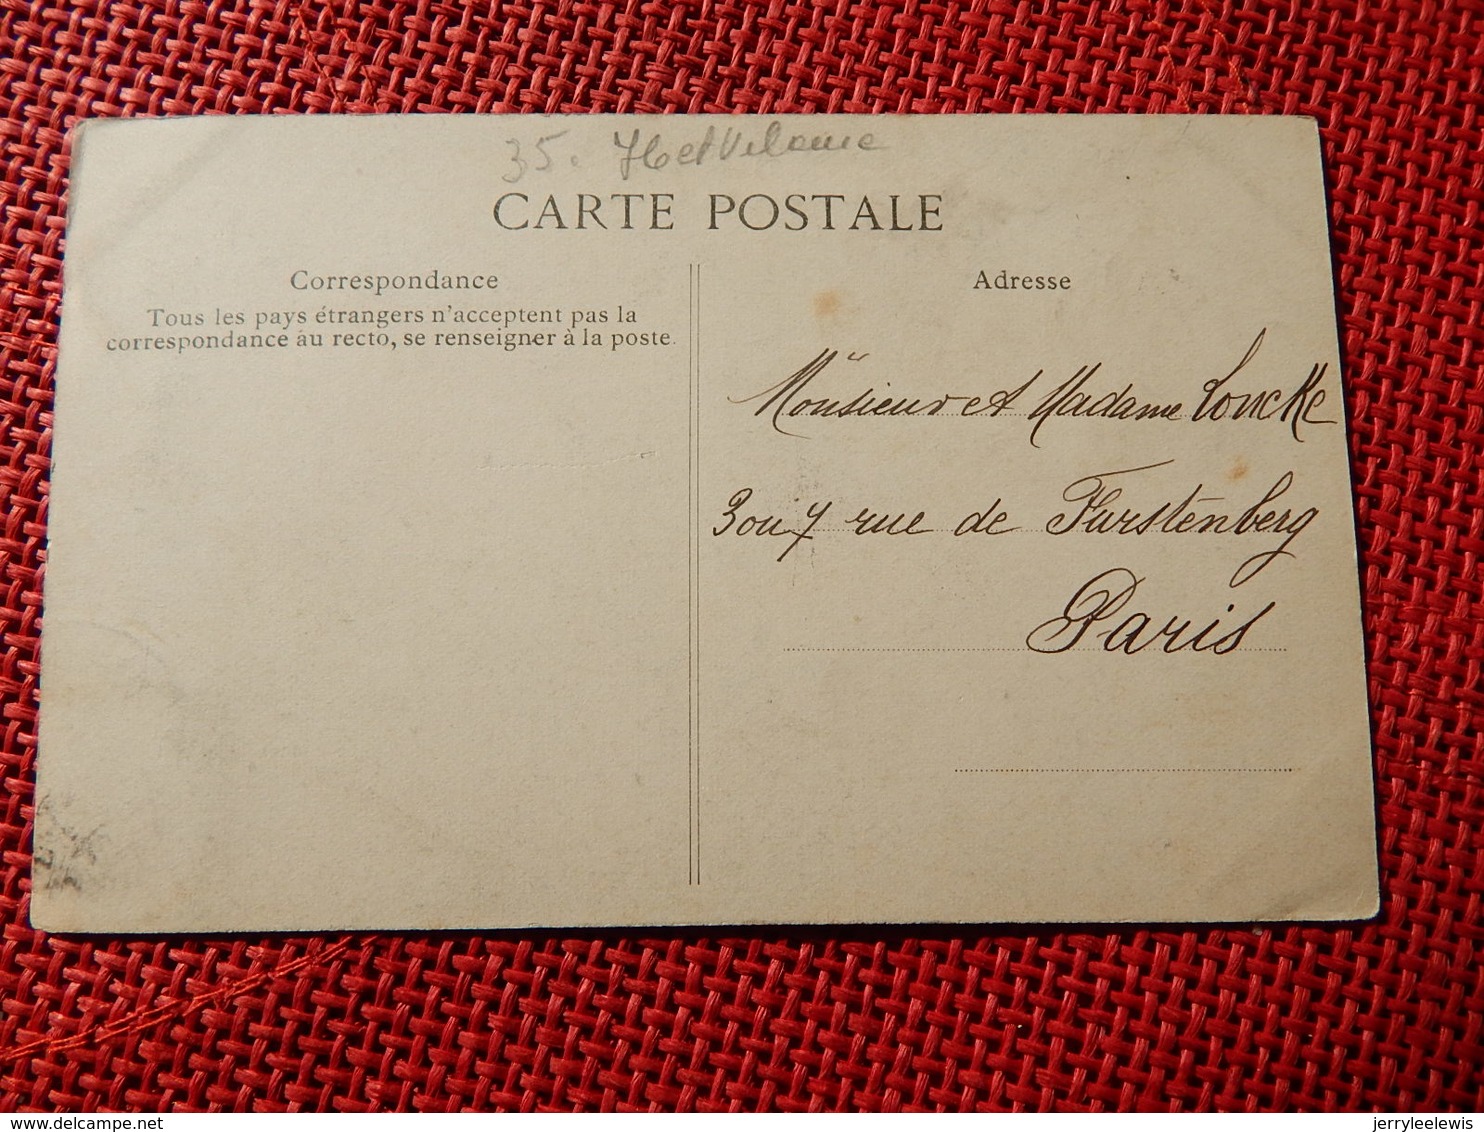 35. Ille et Vilaine
CARTE POSTALE
Correspondance
Tous les pays étrangers n'acceptent pas la
correspondance au recto, se renseigner à la poste.
Adresse
Monsieur et Madame Loncke
3 ou 7 rue de Furstenberg
Paris
jerryleelewis